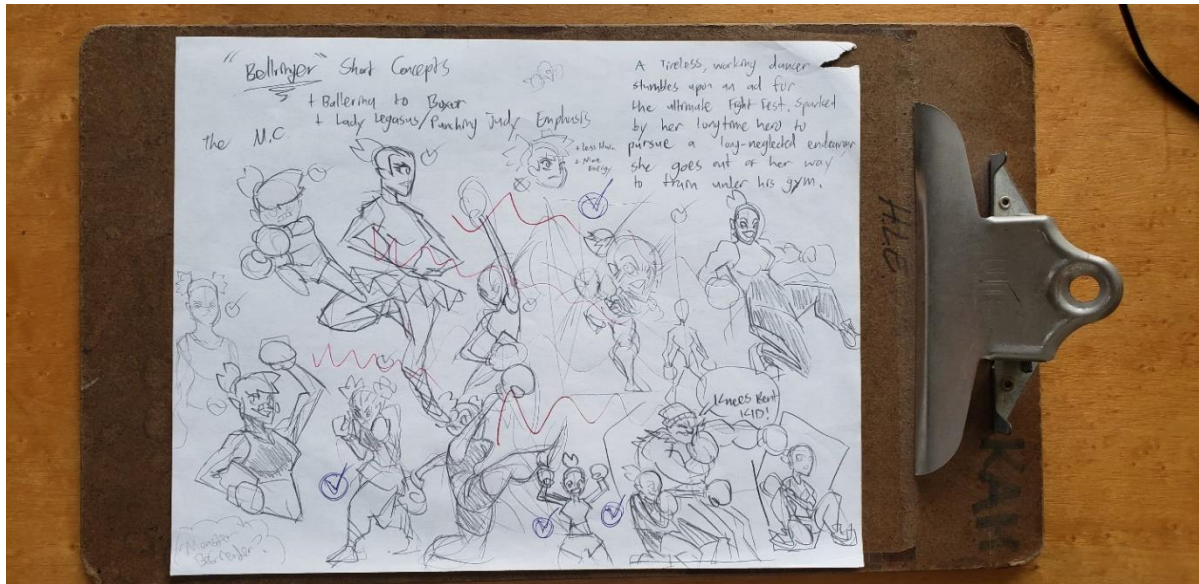 "Bellringer" Short Concepts
+ Ballerina to Boxer
+ Lady Legasus/Punching Judy Emphasis
the M.C.
A tireless, working dancer
stumbles upon an ad for
the ultimate Fight Fest. Sparked
by her longtime hero to
pursue a long-neglected endeavor
she goes out of her way
to train under his gym.
+ Less
+ More
Energy
Knees Bent
KID!
Monster
H.L.E.
KAH